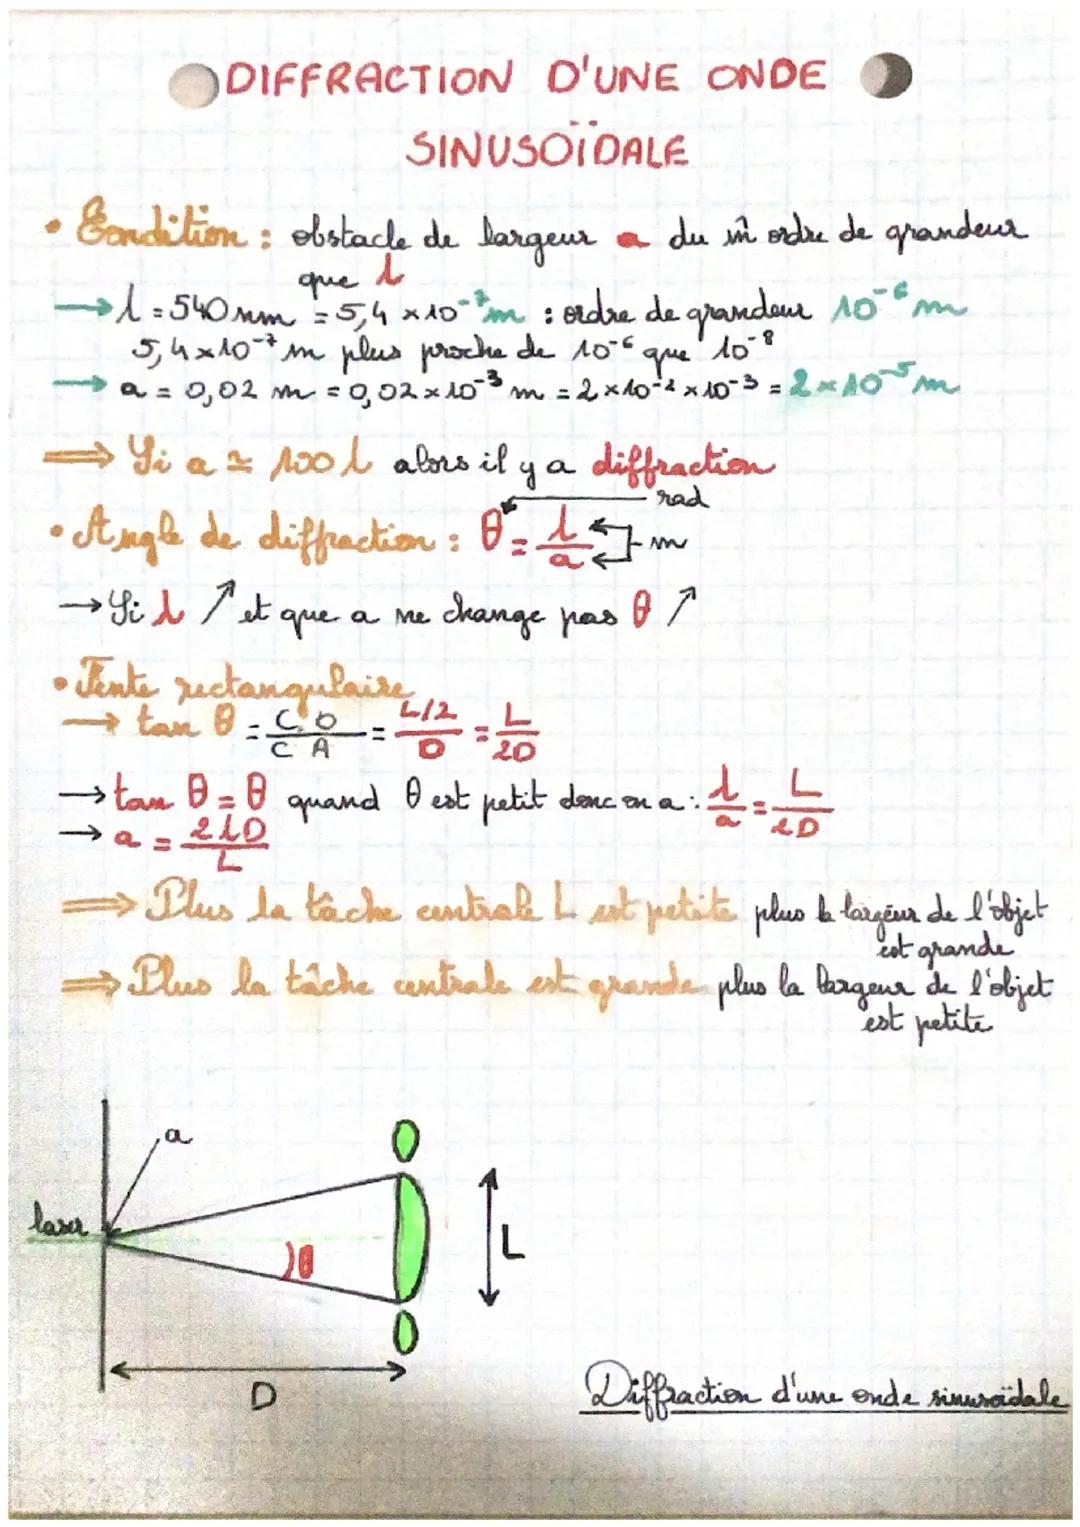 DIFFRACTION D'UNE ONDE
SINUSOÏDALE
• Condition : obstacle de largeur a du m̂ ordre de grandeur
que λ
→ λ = 540 nm = 5,4 × 10⁻⁷ m : ordre de grandeur 10⁻⁶ m
5,4 × 10⁻⁷ m plus proche de 10⁻⁶ que 10⁻⁸
→ a = 0,02 m = 0,02 × 10⁻³ m = 2 × 10⁻² × 10⁻³ = 2 × 10⁻⁵ m
⇒ Si a ≃ 100 λ alors il y a diffraction
rad
• Angle de diffraction : θ = λ/a m
→ Si λ ↗ et que a ne change pas θ ↗
• Fente rectangulaire
→ tan θ = CO/CA = L/2/D = L/2D
→ tan θ = θ quand θ est petit donc on a : λ/a = L/2D
→ a = 2λD/L
⇒ Plus la tâche centrale L est petite plus la largeur de l'objet
est grande
⇒ Plus la tâche centrale est grande plus la largeur de l'objet
est petite
a
laser
θ
L
D
Diffraction d'une onde sinusoïdale